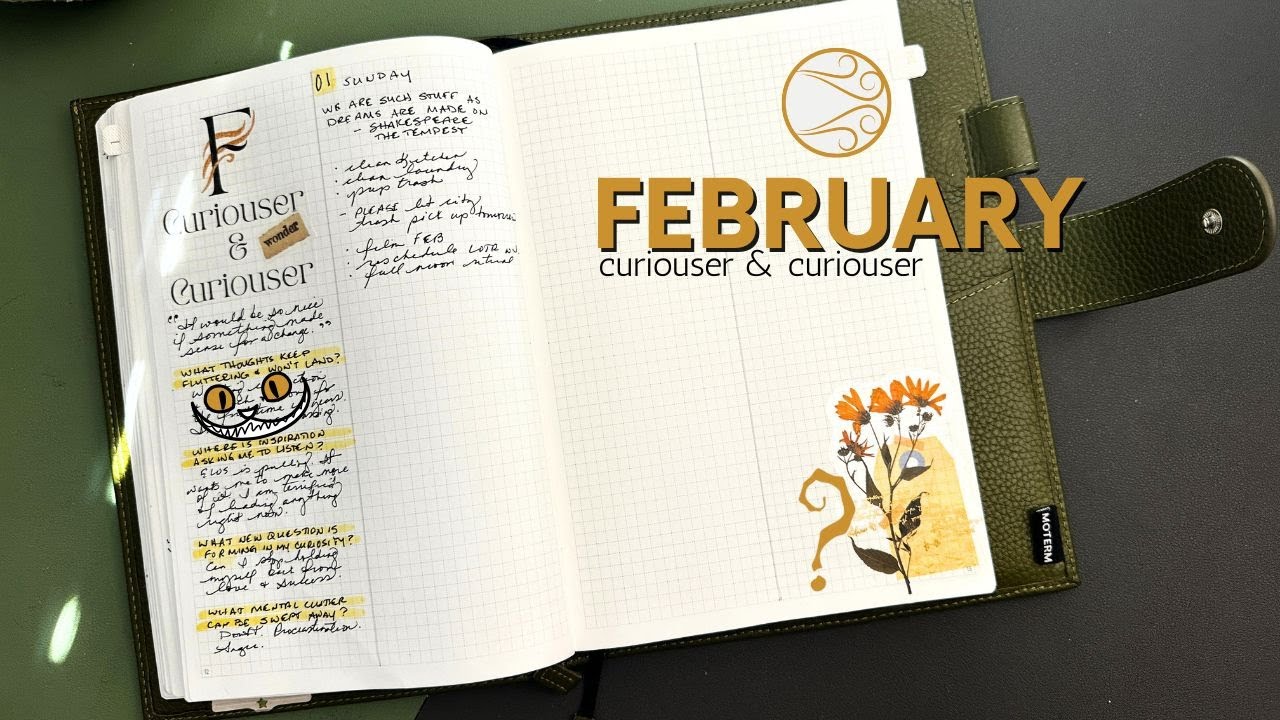 F
Curiouser
&
wonder
Curiouser
"It would be so nice
if something made
sense for a change."
WHAT THOUGHTS KEEP
FLUTTERING & WON'T LAND?
WHERE IS INSPIRATION
ASKING ME TO LISTEN?
is pulling. It
wants me to make more
of it. I am terrified
of leading anything
right now.
WHAT NEW QUESTION IS
FORMING IN MY CURIOSITY?
Can I stop holding
myself back from
love & success.
WHAT MENTAL CLUTTER
CAN BE SWEPT AWAY?
Doubt. Procrastination.
Anger.
12
01 SUNDAY
WE ARE SUCH STUFF AS
DREAMS ARE MADE ON
- SHAKESPEARE
THE TEMPEST
· clean kitchen
· clean laundry
· prep trash
- PLEASE let city
trash pick up tomorrow
· film FEB
· reschedule LOTR
· full moon ritual
FEBRUARY
curiouser & curiouser
?
13
MOTERM